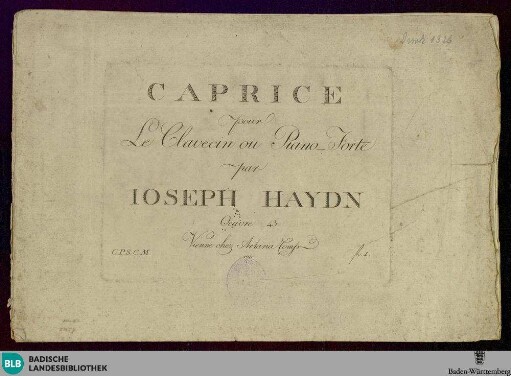 CAPRICE
pour
Le Clavecin ou Piano-Forte
par
IOSEPH HAYDN
Oeuvre 43
Vienne chez Artaria Comp.
C.P.S.C.M.
f. 1.
BLB BADISCHE
LANDESBIBLIOTHEK
Baden-Württemberg